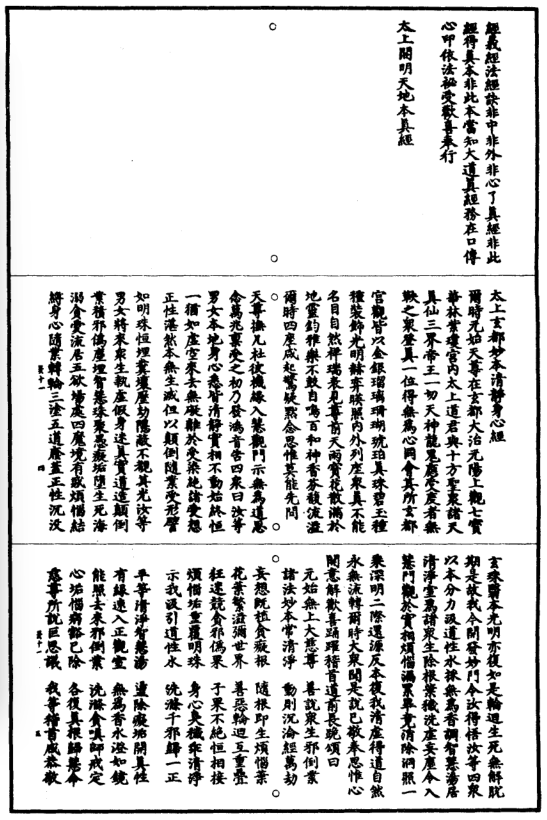 經義經法經訣非中非外非心了真經非此
經得真本非此本當知大道真經務在口傳
心印依法祕受歡喜奉行
太上開明天地本真經
太上玄都妙本清靜身心經
爾時元始天尊在玄都大治元陽上觀七寶
華林紫瓊宮內太上道君與十方聖眾諸天
真仙三界帝王一切天神龍鬼應受度者無
鞅之眾登真一位得無為心同會真所玄都
宮觀皆以金銀瑠璃珊瑚琥珀真珠碧玉種
種裝飾光明赫弈暎照內外列座眾真不能
名目自然禪瑞表見尊前天雨寶花散滿於
地靈鈞雅樂不鼓自鳴百和神香芬馥流溢
爾時四座咸起驚疑默念思惟莫能先問
天尊撫几杜彼機緣入慧觀門示無為道思
念萬兆稟受之初乃發鴻音告四眾曰汝等
男女本地身心悉皆清靜實相不動始終恒
一猶如虛空來去無礙離於受染絕諸愛想
正性湛然本無生滅但以顛倒隨業受形譬
如明珠恒埋糞壤塵劫隱蔽不覩其光汝等
男女將來眾生執虛假身迷真實道造顛倒
業積邪偽塵埋智慧珠聚愚癡垢墮生死海
溺貪愛流居五欲場處四魔境有惑煩惱結
將身心隨業轉輪三塗五道塵蓋正性沉沒
玄珠翳本光明亦復如是輪迴生死無解脫
期是故我今開發妙門令汝得悟汝等四眾
以本分力汲道性水採無為香調智慧湯居
清淨室為諸眾生除根葉穢洗虛妄塵令入
慧門觀於實相煩惱漏累畢竟清除洞照一
乘深明二際還源反本復我清虛得道自然
永無流轉爾時大眾聞是說已敬奉思惟心
開意解歡喜踊躍稽首道前長跪頌曰
元始無上大慈尊　善說眾生邪倒業
諸法妙本常清淨　動則沉淪經萬劫
妄想既植貪癡根　隨根即生煩惱葉
花葉繁滋彌世界　善惡輪迴互重疊
狂迷競貪邪偽果　子果不絕恒相接
煩惱垢重覆明珠　身心臭穢乖清淨
示我汲引道性水　洗滌千邪歸一正
平等清淨智慧湯　盪除癡垢開真性
有緣速入正觀室　無為香水澄如鏡
能照去來邪倒業　洗滌貪嗔歸戒定
心垢惱病豁已除　各復真根歸慧命
慈尊所說叵思議　我等稽首咸恭敬